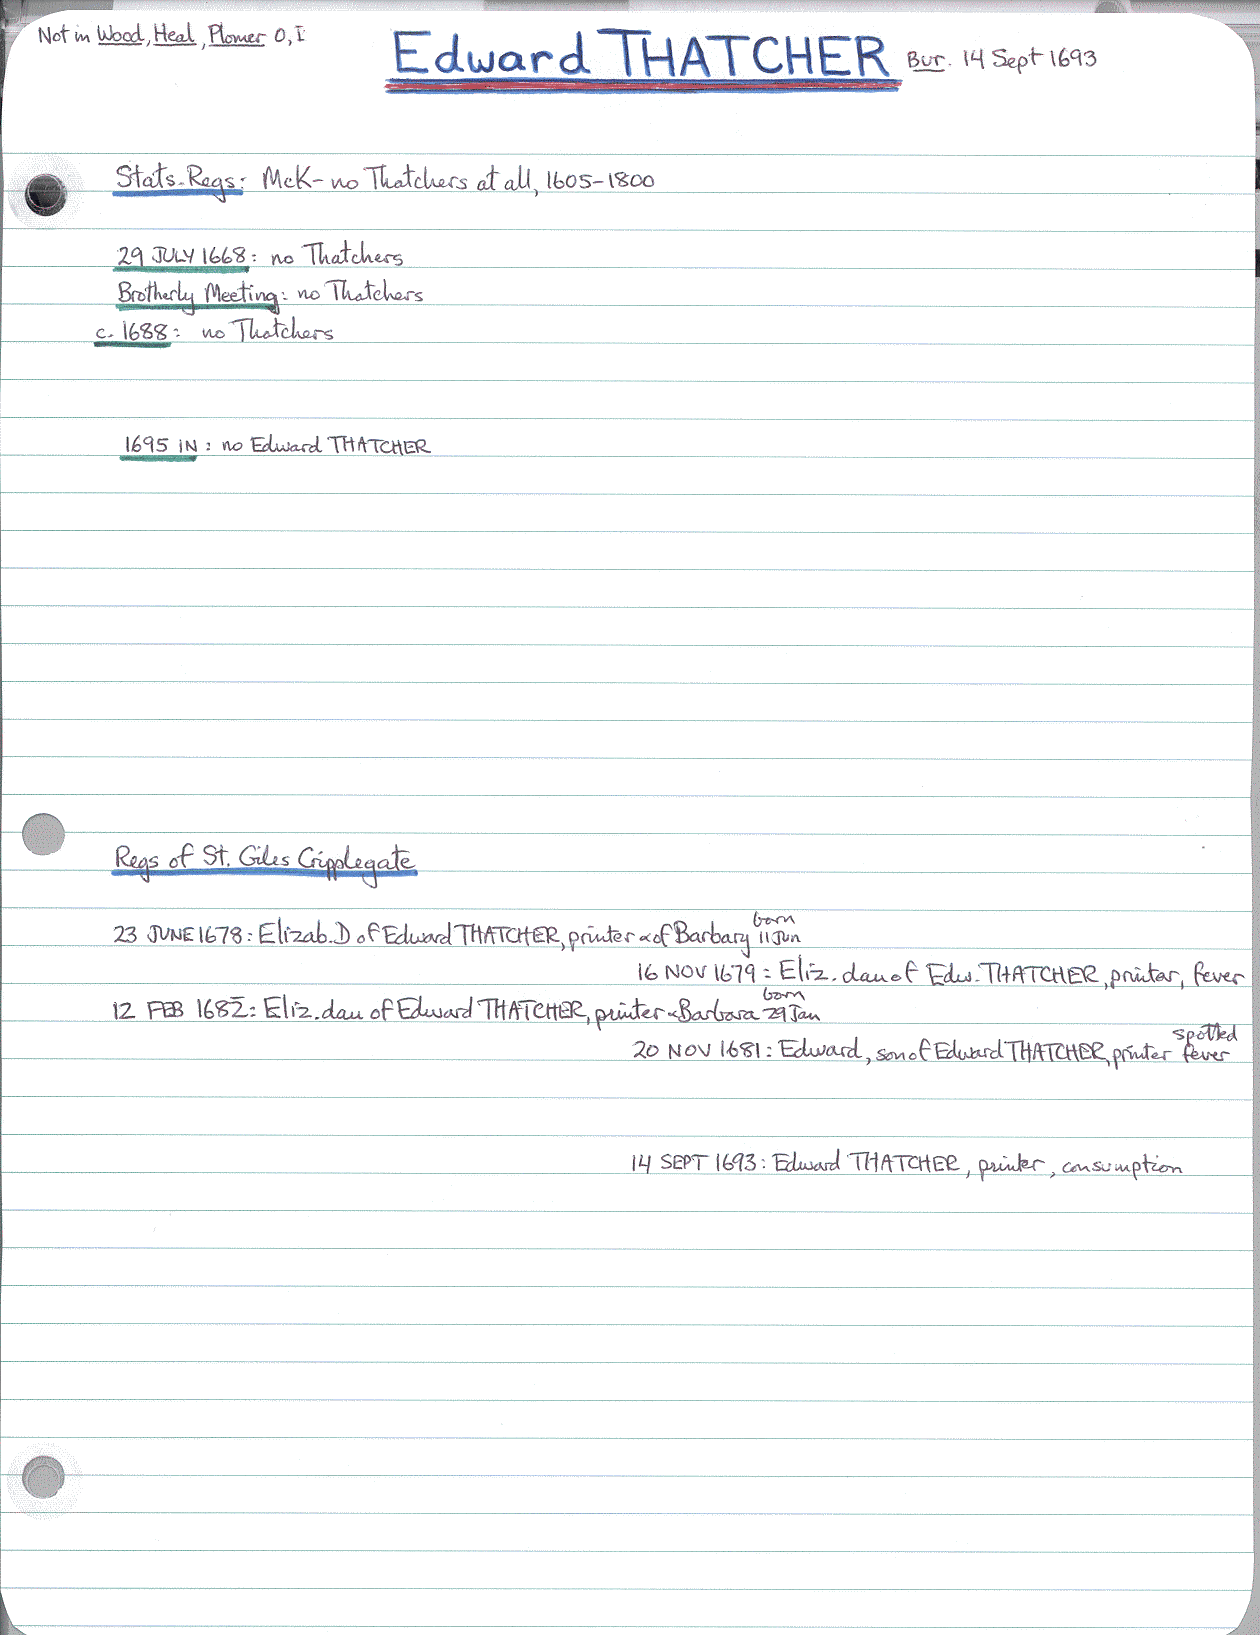 Not in Wood, Heal, Plomer O, I
Edward THATCHER Bur. 14 Sept 1693
Stats. Regs: McK - no Thatchers at all, 1605-1800
29 JULY 1668: no Thatchers
Brotherly Meeting: no Thatchers
c. 1688: no Thatchers
1695 iN: no Edward THATCHER
Regs of St. Giles Cripplegate
born
23 JUNE 1678: Elizab. D of Edward THATCHER, printer & of Barbary 11 Jun
16 NOV 1679: Eliz. dau of Edw. THATCHER, printer, fever
born
12 FEB 1682: Eliz. dau of Edward THATCHER, printer & Barbara 29 Jan
spotted
20 NOV 1681: Edward, son of Edward THATCHER, printer fever
14 SEPT 1693: Edward THATCHER, printer, consumption